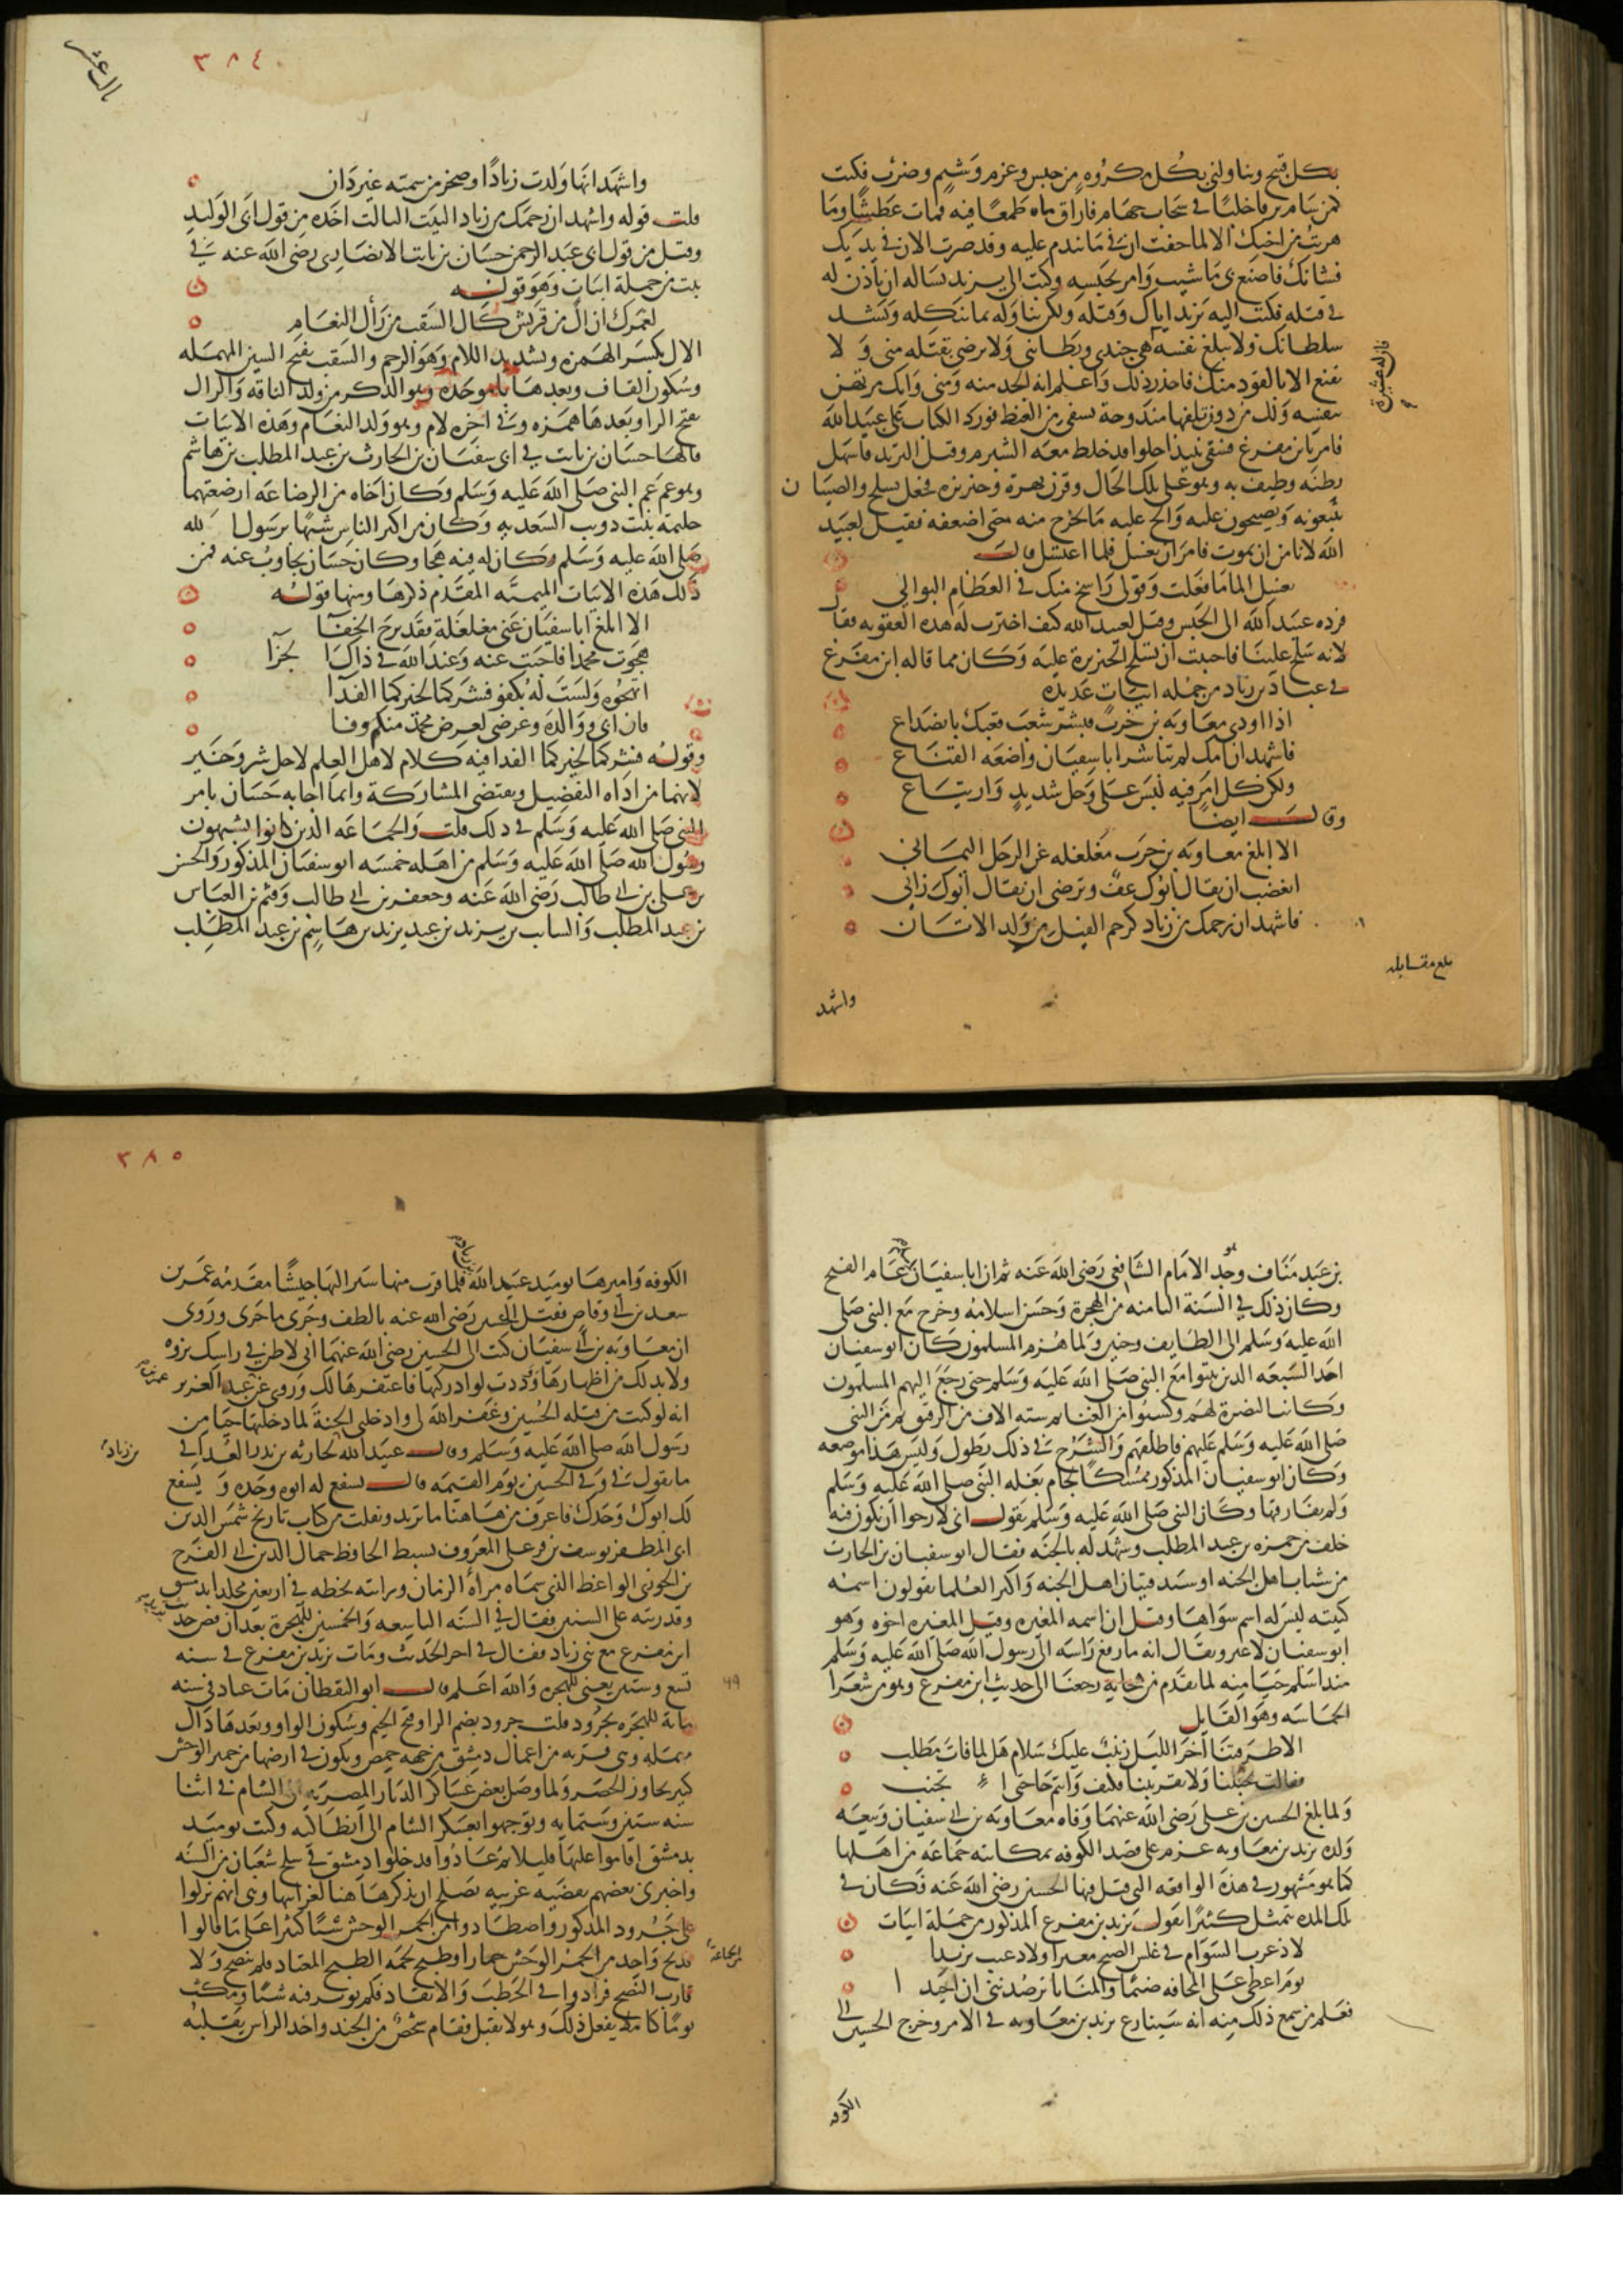 بكل قبيح وينا ولني بكل مكروه من حبس وعزم وشتم وضرب فكنت
كمن شام برقا خلبا في سحاب جهام فاراق ماه طمعا فيه فمات عطشا وما
هربت من اخيك الا لما خفت ان في ما يندم عليه وقد صرت الان في يديك
فشانك فاصنع بي ما شيت وامر بحبسه وكتب الى يزيد يساله ان ياذن له
في قتله فكتب اليه يزيد اياك وقتله ولكن تناوله بما ينكله ويشد
سلطانك ولا يبلغ نفسه فان له عشيرة هي جندي وبطانتي ولا يرضى بقتله مني ولا
يقنع الا بالقود منك فاحذر ذلك واعلم انه الجد منه ومني وانك مرتهن
بنفسه ولك من دون تلفها مندوحة تشفي من الغيظ فورد الكتاب على عبيد الله
فامر بابن مفرغ فسقي نبيذا حلوا قد خلط معه الشبرم وقيل التربد فاسهل
بطنه وطيف به وهو على تلك الحال وقرن بهرة وخنزيرة فجعل يسلح والصبيان
يتبعونه ويصيحون عليه والح عليه ما يخرج منه حتى اضعفه فقيل لعبيد
الله لا نامن ان يموت فامر ان يغسل فلما اغتسل قال
يغسل الما ما فعلت وقولي راسخ منك في العظام البوالي
فرده عبيد الله الى الحبس وقيل لعبيد الله كيف اخترت له هذه العقوبه فقال
لانه سلح علينا فاحببت ان تسلح الخنزيرة عليه وكان مما قاله ابن مفرغ
في عباد بن زياد من جمله ابيات عديده
اذا اودى معاويه بن حرب فبشر شعب قعبك بانصداع
فاشهد ان امك لم تباشر ابا سفيان واضعه القناع
ولكن كل امر فيه لبس على وجل شديد وارتياع
وقال ايضا
الا ابلغ معاويه بن حرب مغلغله عن الرجل اليماني
اتغضب ان يقال ابوك عف وترضى ان يقال ابوك زاني
فاشهد ان رحمك من زياد كرحم الفيل من ولد الاتان
بلغ مقابله
واشهد
٣٨٤
الثالث عشر
واشهد انها ولدت زيادا وصخر من سميه غير دان
قلت قوله واشهد ان رحمك من زياد البيت الثالث اخذه من قول ابي الوليد
وقيل من قول ابي عبد الرحمن حسان بن ثابت الانصاري رضي الله عنه في
بيت من جملة ابيات وهو قوله
لعمرك ان الك من قريش كال السقب من رأل النعام
الال بكسر الهمزه وتشديد اللام وهو الرحم والسقب بفتح السين المهمله
وسكون القاف وبعدها با موحده وهو الذكر من ولد الناقه والرال
بفتح الرا وبعدها همزه وفي اخره لام وهو ولد النعام وهذه الابيات
قالها حسان بن ثابت في ابي سفيان بن الحارث بن عبد المطلب بن هاشم
وهو عم النبي صلى الله عليه وسلم وكان اخاه من الرضاعه ارضعتهما
حليمه بنت ذويب السعديه وكان من اكبر الناس شبها برسول الله
صلى الله عليه وسلم وكان له فيه هجا وكان حسان يجاوب عنه فمن
ذلك هذه الابيات الميميه المقدم ذكرها ومنها قوله
الا ابلغ ابا سفيان عني مغلغلة فقد برح الخفا
هجوت محمدا فاجبت عنه وعند الله في ذاك الجزا
اتهجوه ولست له بكفو فشركما لخيركما الفدا
فان ابي ووالده وعرضي لعرض محمد منكم وقا
وقوله فشركما لخيركما الفدا فيه كلام لاهل العلم لاجل شر وخير
لانهما من اداه التفضيل ويقتضي المشاركة وانما اجابه حسان بامر
النبي صلى الله عليه وسلم في ذلك قلت والجماعه الذين كانوا يشبهون
رسول الله صلى الله عليه وسلم من اهله خمسه ابو سفيان المذكور والحسن
بن علي بن ابي طالب رضي الله عنه وجعفر بن ابي طالب وقثم بن العباس
بن عبد المطلب والسايب بن يزيد بن عبد يزيد بن هاشم بن عبد المطلب
بن عبد مناف وهو جد الامام الشافعي رضي الله عنه ثم ان ابا سفيان عام الفتح
وكان ذلك في السنة الثامنه من الهجرة وحسن اسلامه وخرج مع النبي صلى
الله عليه وسلم الى الطايف وحنين ولما هزم المسلمون كان ابو سفيان
احد السبعه الذين ثبتوا مع النبي صلى الله عليه وسلم حتى رجع اليهم المسلمون
وكانت النصرة لهم وكسبوا من الغنائم سته الاف من الرقيق ثم من النبي
صلى الله عليه وسلم عليهم فاطلقهم والشرح في ذلك يطول وليس هذا موضعه
وكان ابو سفيان المذكور ممسكا لجام بغله النبي صلى الله عليه وسلم
ولم يفارقها وكان النبي صلى الله عليه وسلم يقول اني لارجوا ان يكون فيه
خلف من حمزه بن عبد المطلب وشهد له بالجنه فقال ابو سفيان بن الحارث
من شباب اهل الجنه او سيد فتيان اهل الجنه واكثر العلما يقولون اسمه
كنيته ليس له اسم سواها وقيل ان اسمه المغيره وقيل المغيره اخوه وهو
ابو سفيان لا غير ويقال انه ما رفع راسه الى رسول الله صلى الله عليه وسلم
منذ اسلم حيا منه لما تقدم من هجايه رجعنا الى حديث ابن مفرغ وهو من شعرا
الحماسه وهو القايل
الا طرقتنا اخر الليل زينب عليك سلام هل لما فات مطلب
فقالت تجنبنا ولا تقربننا فكيف وانتم حاجتي اتجنب
ولما بلغ الحسين بن علي رضي الله عنهما وفاه معاويه بن ابي سفيان وبيعه
ولده يزيد بن معاويه عزم على قصد الكوفه بمكاتبه جماعه من اهلها
كما هو مشهور في هذه الواقعه التي قتل فيها الحسين رضي الله عنه فكان في
تلك المده يتمثل كثيرا بقول يزيد بن مفرغ المذكور من جملة ابيات
لا ذعرت السوام في غلس الصبح مغيرا ولا دعيت يزيدا
يوم اعطى على المخافه ضيما والمنايا ترصدنني ان احيدا
فعلم من سمع ذلك منه انه سينازع يزيد بن معاويه في الامر وخرج الحسين الى
الكوفه
٣٨٥
الكوفه واميرها يوميذ عبيد الله بن زياد فلما قرب منها سير اليها جيشا مقدمه عمر بن
سعد بن ابي وقاص فقتل الحسين رضي الله عنه بالطف وجرى ما جرى وروى
ان معاويه بن ابي سفيان كتب الى الحسين رضي الله عنهما اني لاظن في راسك نزوه
ولا بد لك من اظهارها ووددت لو ادركها فاغتفرها لك وروي عن عمر بن عبد العزيز
انه لو كنت من قتله الحسين وغفر الله لي وادخلني الجنة لما دخلتها حيا من
رسول الله صلى الله عليه وسلم وقال عبيد الله بن زياد لحارثه بن بدر الغداني
ما تقول في وفي الحسين يوم القيمه قال يشفع له ابوه وجده ويشفع
لك ابوك وجدك فاعرف من هاهنا ما تريد ونقلت من كتاب تاريخ شمس الدين
ابي المظفر يوسف بن قزعلي المعروف بسبط الحافظ جمال الدين ابي الفرج
بن الجوزي الواعظ الذي سماه مرأة الزمان ورايته بخطه في اربعين مجلدا بدمشق
وقد رتبه على السنين فقال في السنه التاسعه والخمسين للهجرة بعد ان قص حديث
ابن مفرغ مع بني زياد فقال في اخر الحديث ومات يزيد بن مفرغ في سنه
تسع وستين يعني للهجره والله اعلم قال ابو اليقظان مات عباد في سنه
٤٩
ماية للهجره بجرود قلت جرود بضم الرا وفتح الجيم وسكون الواو وبعدها دال
مهمله وهي قريه من اعمال دمشق من جهه حمص ويكون في ارضها من حمير الوحش
كثير يجاوز الحصر ولما وصل بعض عساكر الديار المصريه الى الشام في اثنا
سنه ستين وستمايه وتوجهوا بعسكر الشام الى انطاكيه وكنت يوميذ
بدمشق اقاموا عليها قليلا ثم عادوا فدخلوا دمشق في سلخ شعبان من السنه
واخبرني بعضهم بقضيه غريبه تصلح ان يذكر ها هنا لغرابتها وهي انهم نزلوا
على جرود المذكور واصطادوا من الحمر الوحش شيئا كثيرا على ما قالوا
فذبح واحد من الجماعه من الحمر الوحش حمارا وطبخ لحمه الطبخ المعتاد فلم ينضج ولا
قارب النضج فزادوا في الحطب والايقاد فلم يوثر فيه شيئا ومكث
يوما كاملا يفعل ذلك وهو لا يقبل فقام شخص من الجند واخذ الراس يقلبه